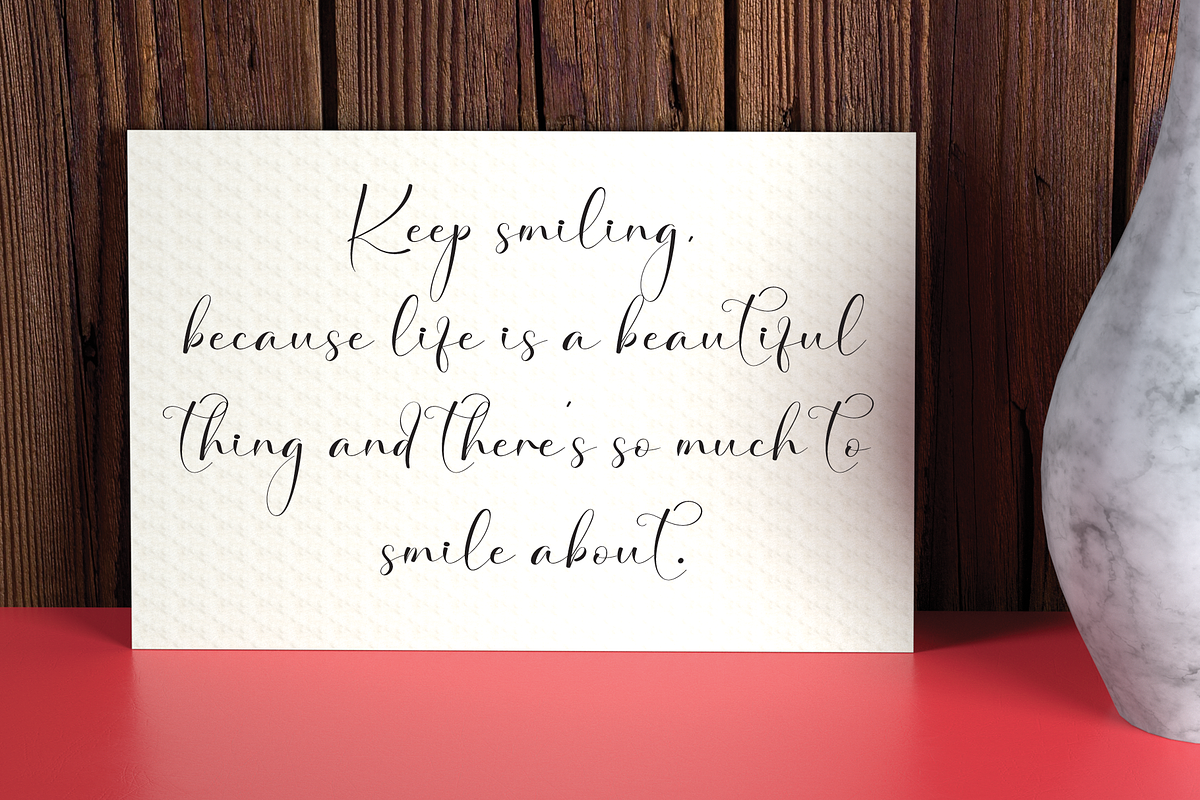 Keep smiling,
because life is a beautiful
thing and there's so much to
smile about.